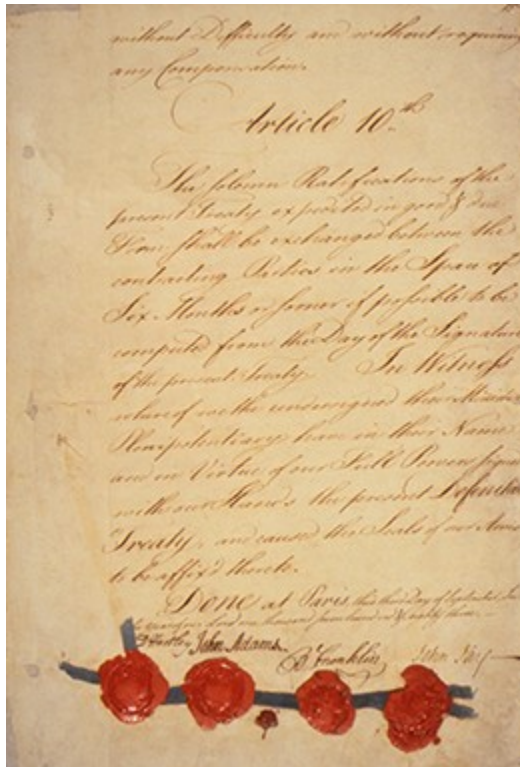 without Difficulty and without requiring
any Compensation.
Article 10th
The solemn Ratifications of the
present Treaty expedited in good & due
Form shall be exchanged between the
contracting Parties in the Space of
Six Months or sooner if possible to be
computed from the Day of the Signature
of the present Treaty. In Witness
whereof we the undersigned their Ministers
Plenipotentiary have in their Name
and in Virtue of our Full Powers signed
with our Hands the present Definitive
Treaty, and caused the Seals of our Arms
to be affix'd thereto.
Done at Paris, this third Day of September
in the year of our Lord one thousand seven hundred & eighty three.
D Hartley John Adams. B Franklin John Jay